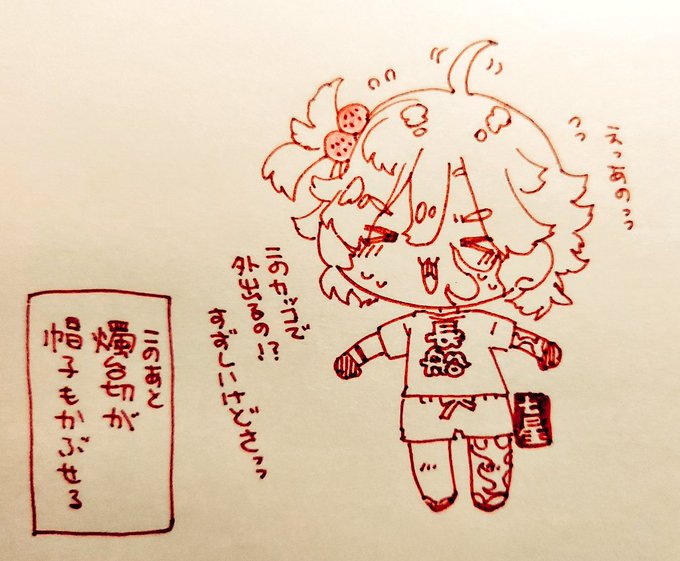 えっあのっっ
っっ
このカッコで
外出るの!?
すずしいけどさっっ
長船
七星
このあと
燭台切が
帽子もかぶせる